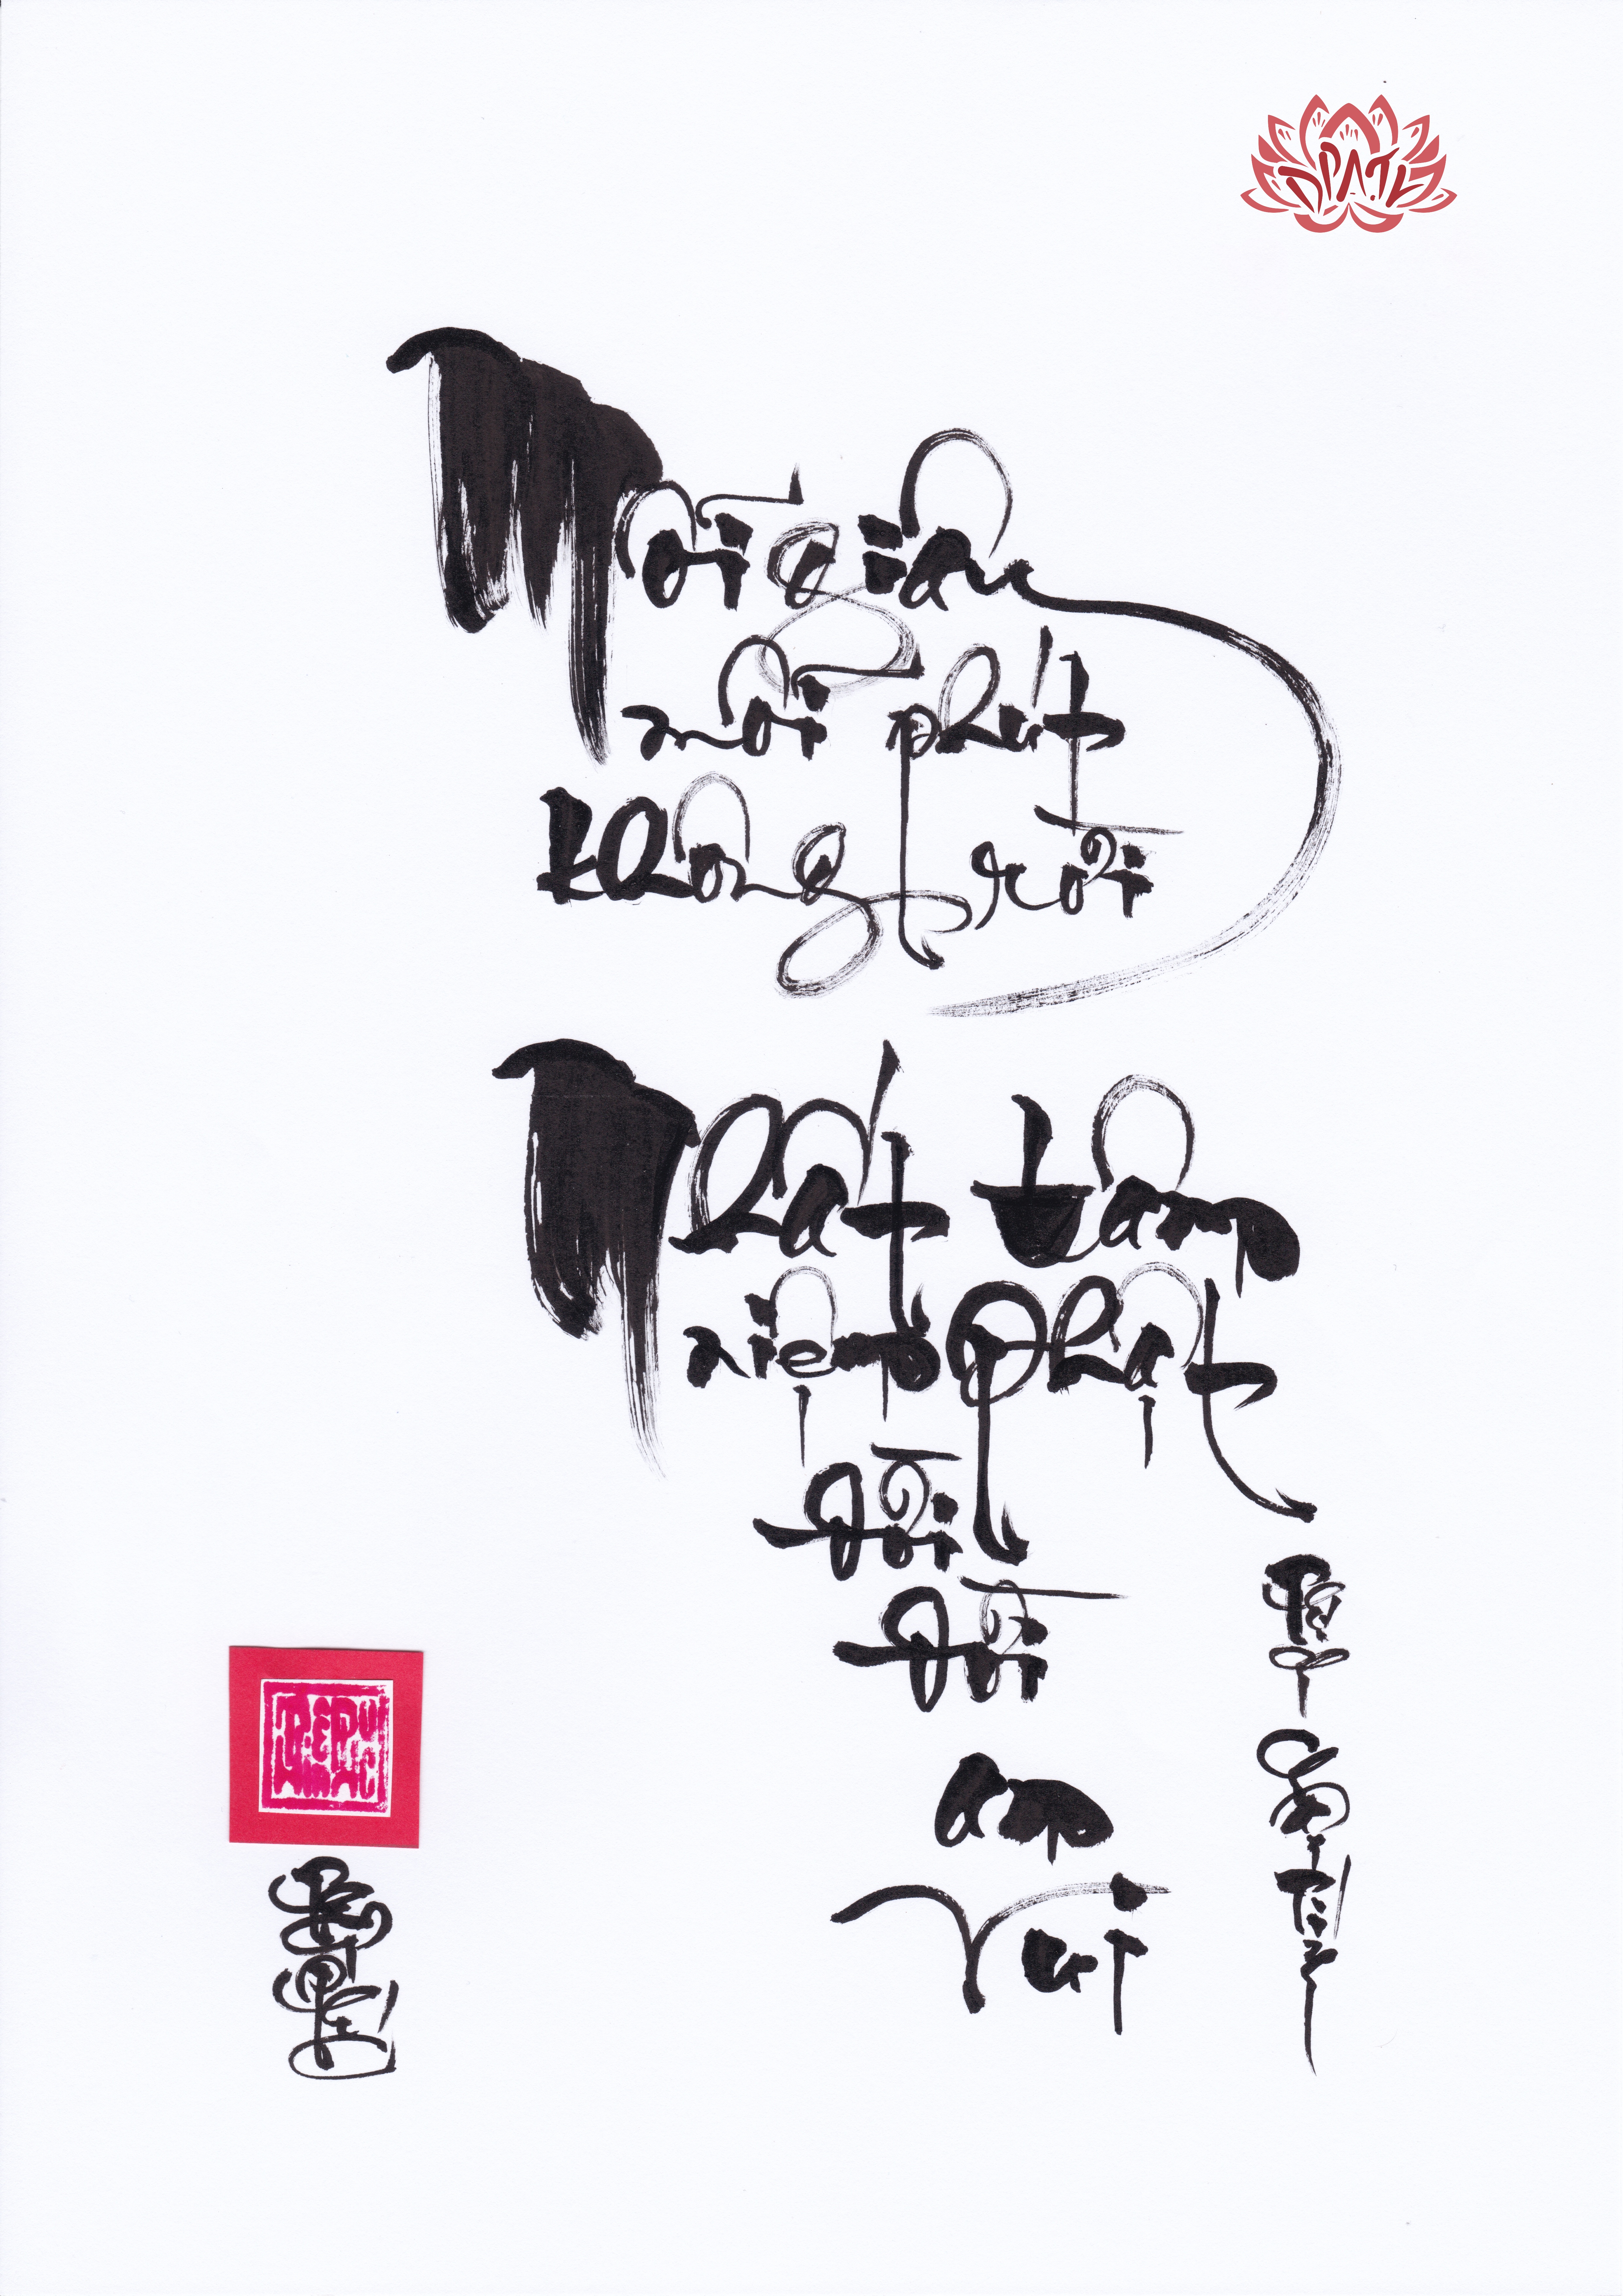 ĐPATL
Mỗi giây
mỗi phút
không rời
Nhất tâm
niệm Phật
đời
đời
an
vui